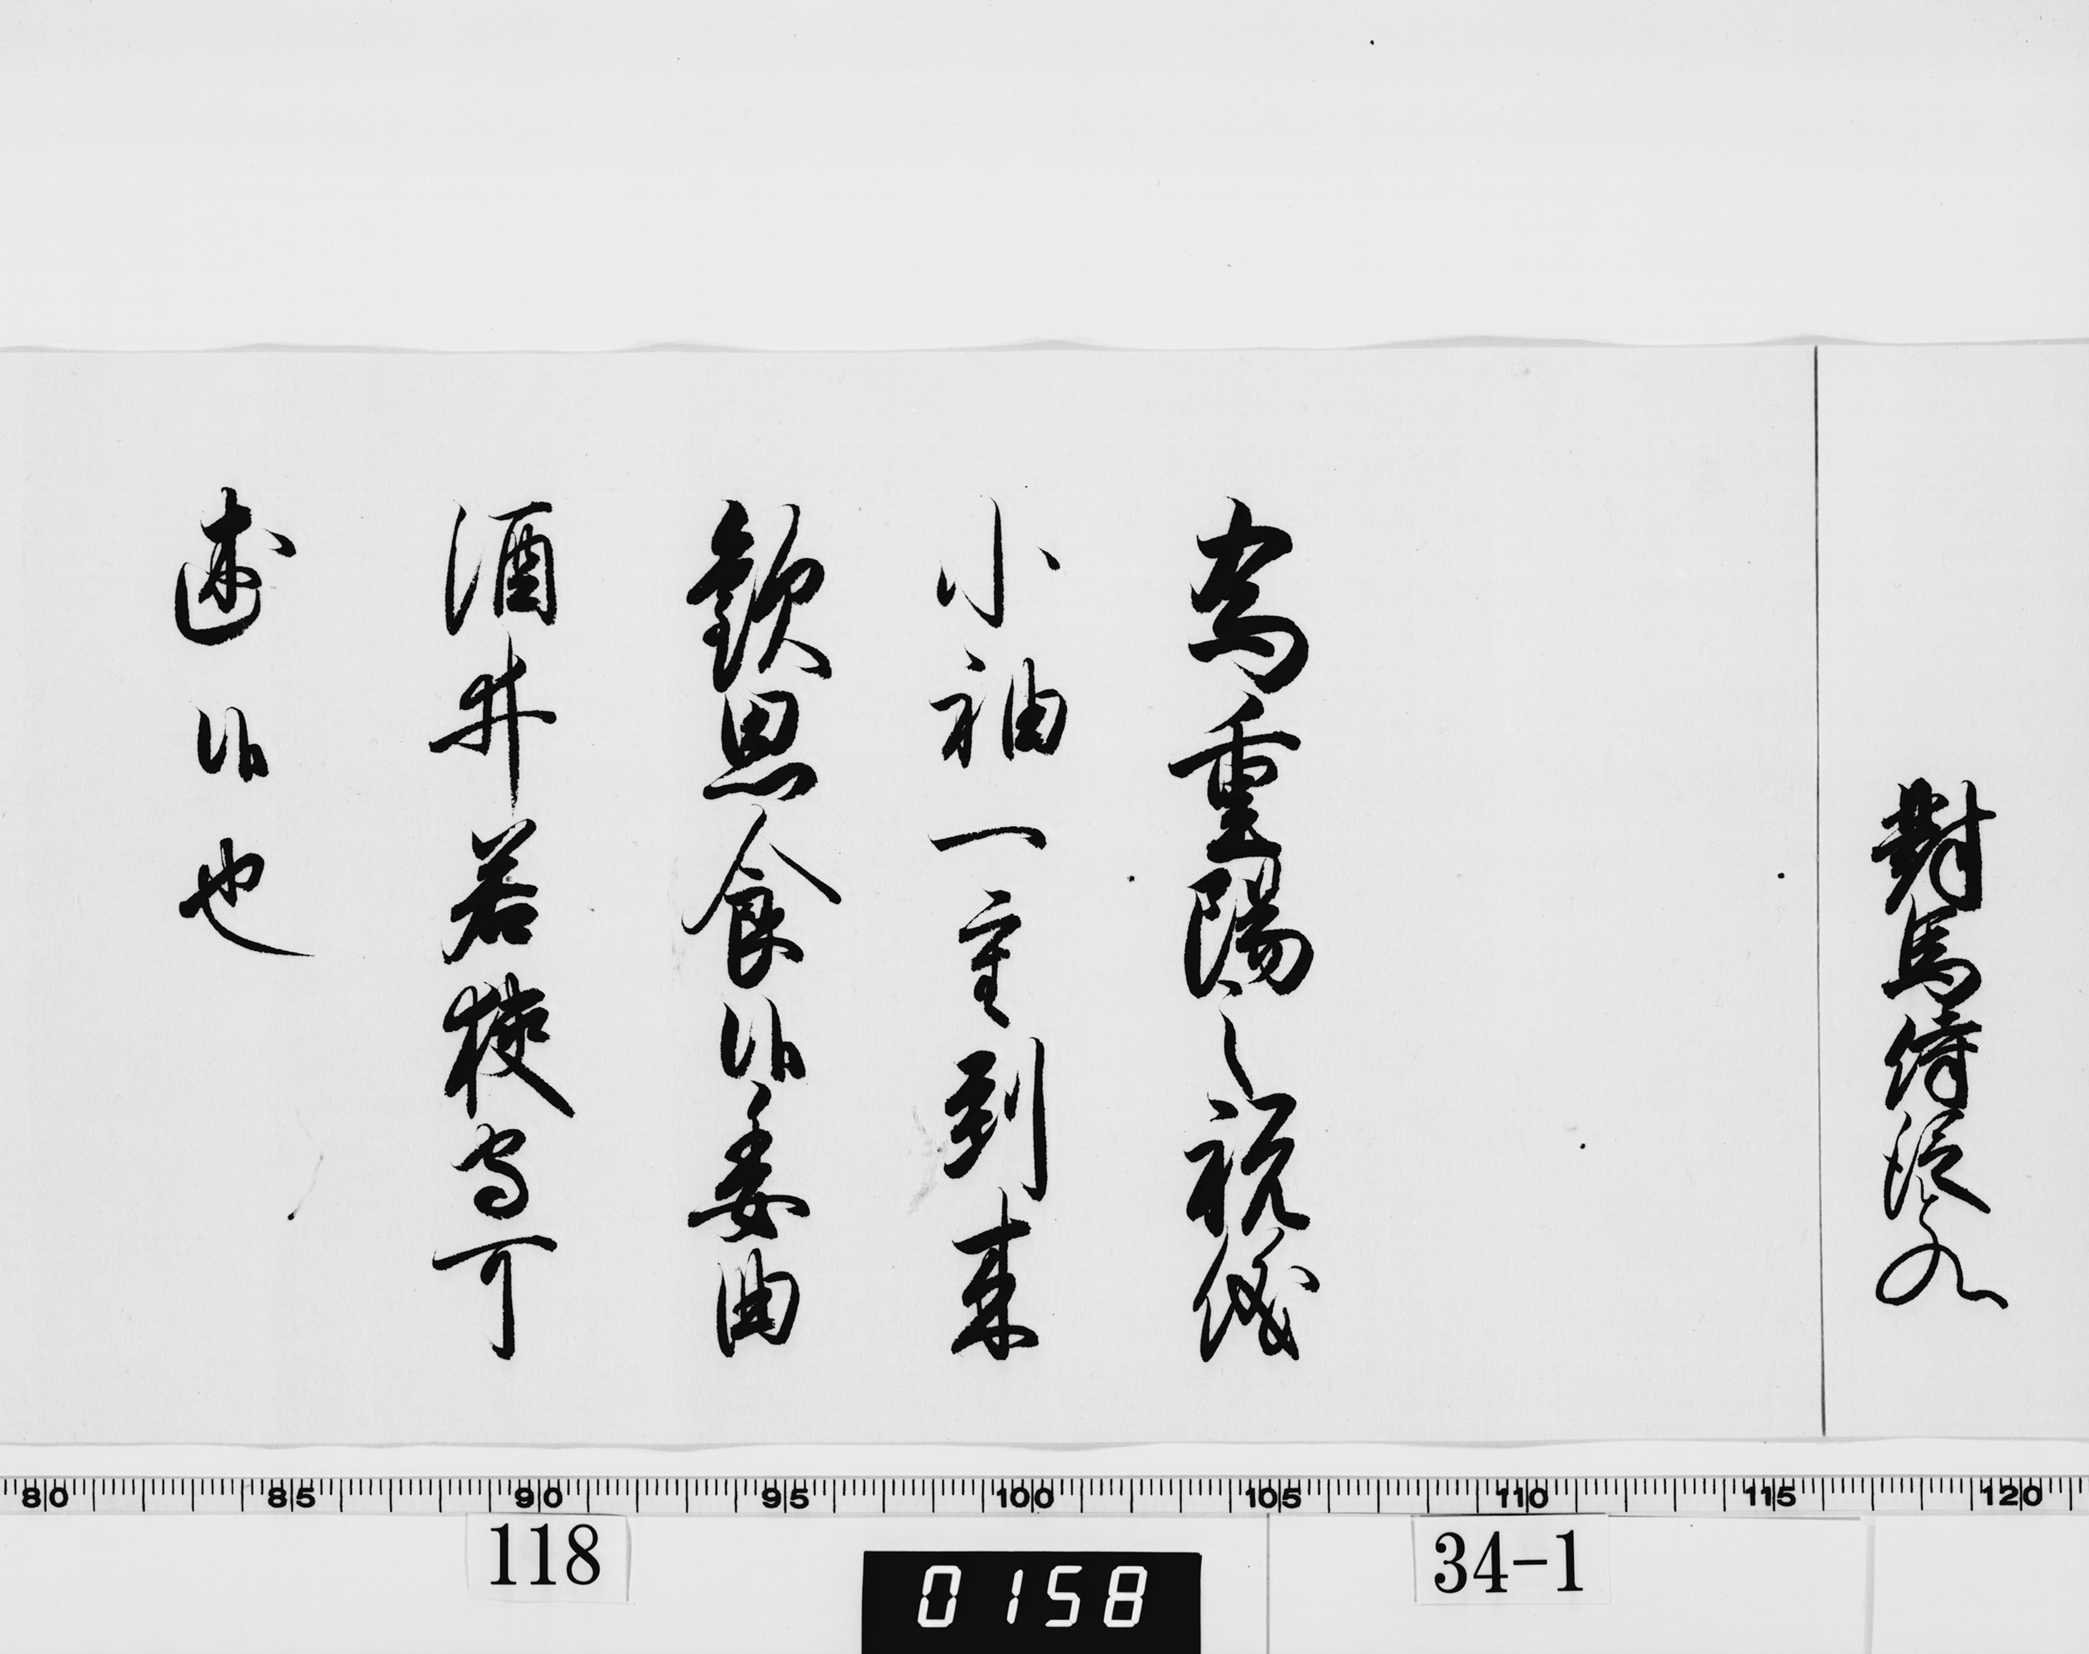 對馬侍従殿
為重陽之祝儀
小袖一重到来
歓思食候委曲
酒井若狭守可
述候也
80 85 90 95 100 105 110 115 120
118
0158
34-1